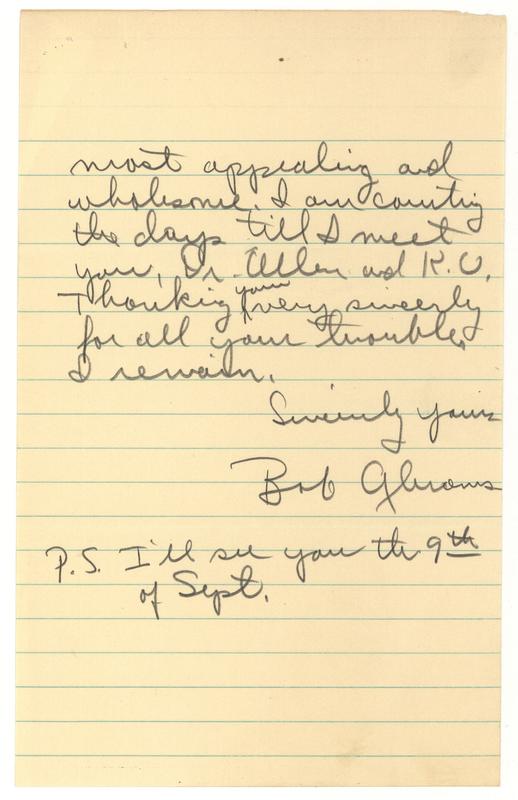 most appealing and
wholesome. I am counting
the days till I meet
you, Dr. Allen and K.U.
Thanking you very sincerely
for all your trouble,
I remain,
Sincerely yours
Bob
P.S. I'll see you the 9th
of Sept.